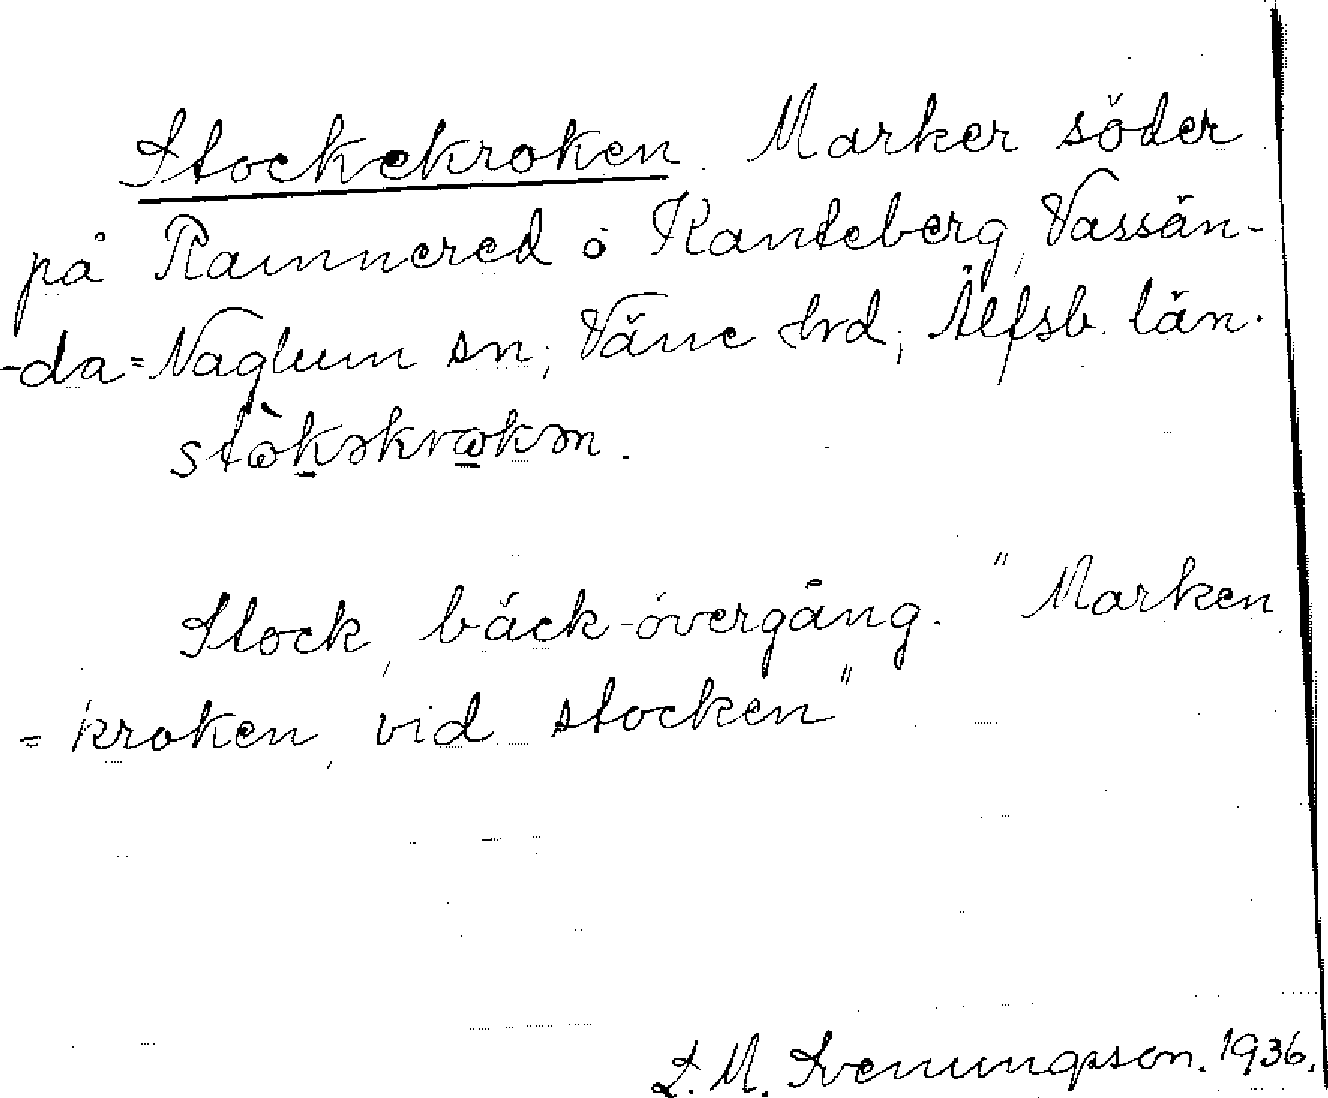 Stockekroken. Marker söder
på Rannered o Kanteberg, Vassän-
-da=Naglum sn; Väne hrd; Älfsb. län.
stòkəkrokən.
Stock, bäck-övergång. "Marken
= kroken, vid stocken"
L. M. Svenungsson. 1936.